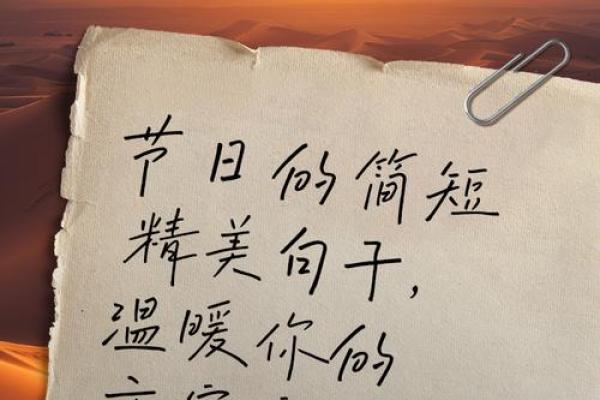 节日的简短
精美句子,
温暖你的